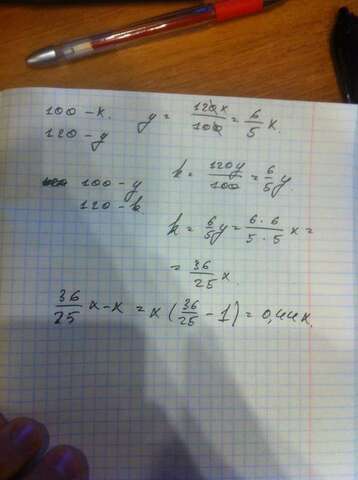 100 - x. y = 120x/100 = 6/5 x.
120 - y
100 - y k = 120y/100 = 6/5 y.
120 - k
k = 6/5 y = 6·6/5·5 x =
= 36/25 x.
36/25 x - x = x (36/25 - 1) = 0,44x.